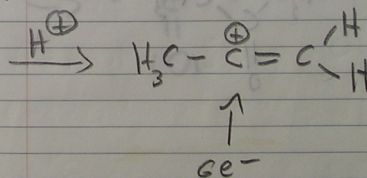 H⊕
H₃C – C⊕ = C H
H
6e⁻